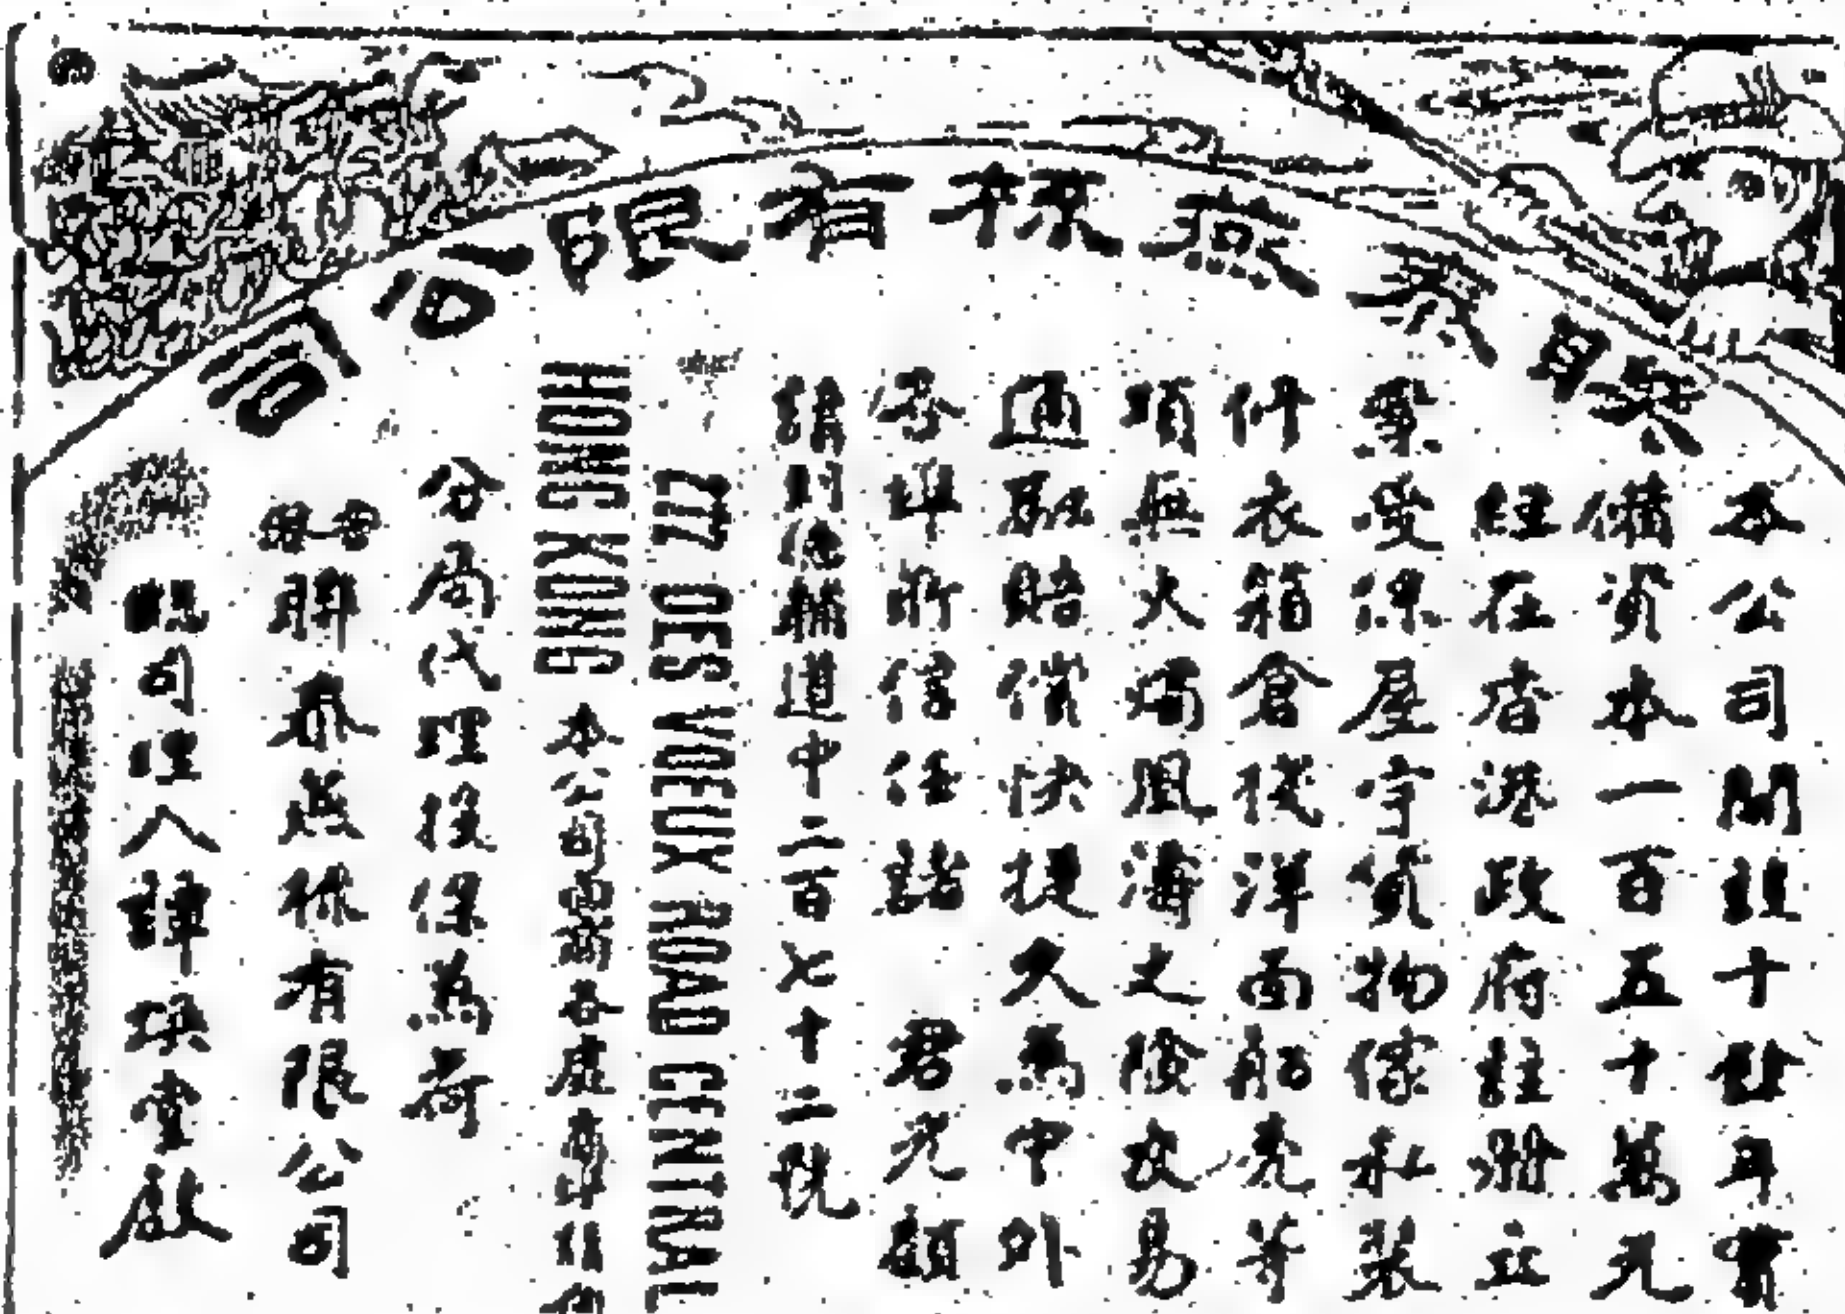 聯泰燕梳有限公司
本公司開設十餘年實
備資本一百五十萬元
經在香港政府註冊立
案受保屋宇貨物傢私裝
什衣箱倉棧洋面船壳等
項無火燭風濤之險交易
通融賠償快捷久為中外
各埠所信任諸 君光顧
請到德輔道中二百七十二號
272 DES VOEUX ROAD CENTRAL
HONG KONG 本公司各處
分局代理投保為荷
聯泰燕梳有限公司
總司理人譚煥堂啟